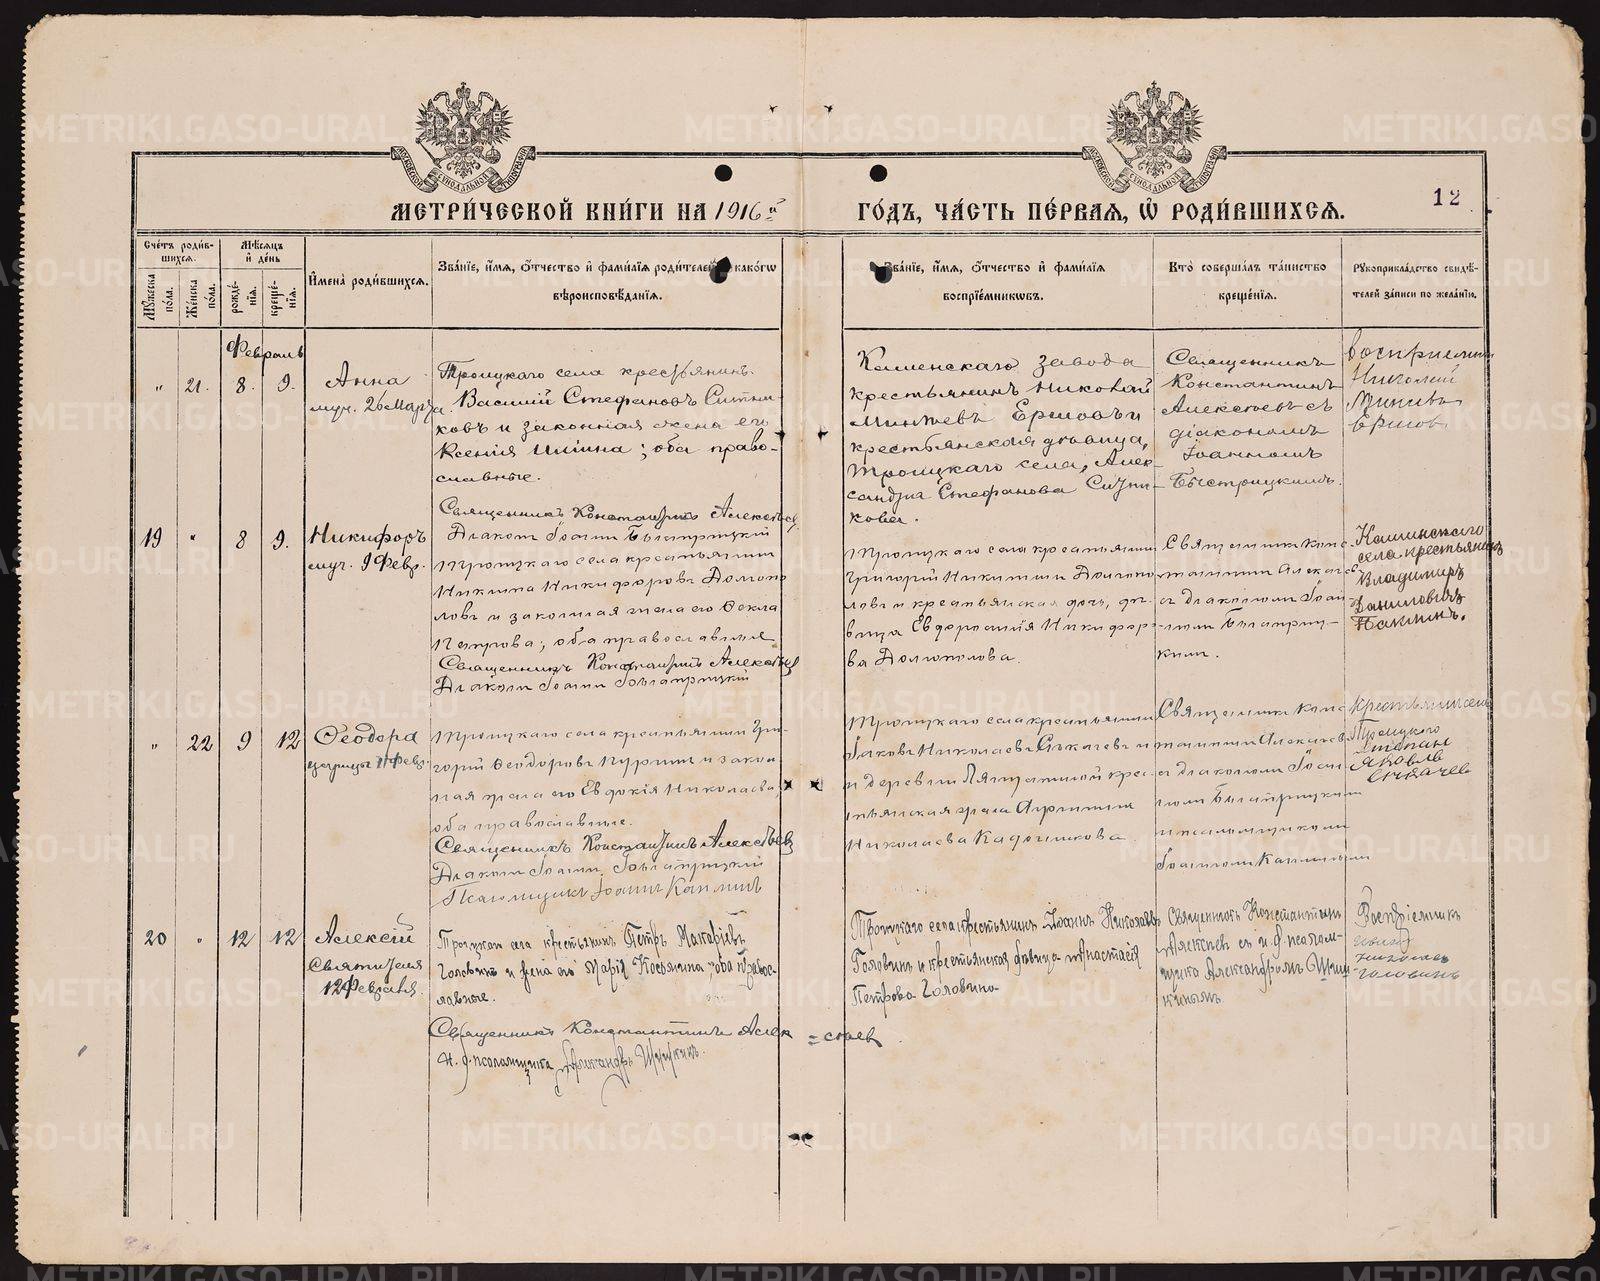 МЕТРИ́ЧЕСКОЙ КНИ́ГИ НА 1916й
ГО́ДЪ, ЧА́СТЬ ПЕ́РВАЯ, Ѿ РОДИ́ВШИХСЯ.
12
Сче́тъ роди́в-
шихся.
Мѣ́сяцъ
и҆ де́нь
Мꙋ́жеска
по́ла.
Же́нска
по́ла.
рожде́-
нїя.
креще́-
нїя.
И҆мена̀ роди́вшихся.
Зва́нїе, и҆́мя, ѻ҆́тчество и҆ фами́лїя роди́телей како́гѡ
вѣроисповѣ́данїя.
Зва́нїе, и҆́мя, ѻ҆́тчество и҆ фами́лїя
воспрїе́мникѡвъ.
Кто̀ соверша́лъ та́инство
креще́нїя.
Рꙋкоприкла́дство свидѣ́-
телей за́писи по жела́нїю.
Февраль
„ 21. 8. 9.
Анна
муч. 26 Марта.
Троицкаго села крестьянинъ
Василій Стефановъ Ситни-
ковъ и законная жена его
Ксенія; оба право-
славные.
Священникъ Константинъ Алексѣев
Діаконъ Іоаннъ Быстрицкій
Каменскаго завода
крестьянинъ Николай
Минѣевъ Ершовъ и
крестьянская дѣвица,
Троицкаго села, Алек-
сандра Стефанова Ситни-
кова.
Священникъ
Константинъ
Алексѣевъ съ
діакономъ
Іоанномъ
Быстрицкимъ.
восприемни
Николай
Минѣевъ
Ершов
19 „ 8 9.
Никифоръ
муч. 9 Февр.
Троицкаго села крестьянинъ
Никита Никифоровъ Долгопо
ловъ и законная жена его Ѳекла
Петрова; оба православные
Священникъ Константинъ Алексѣев
Діаконъ Іоаннъ Быстрицкій
Троицкаго села крестьянинъ
Григорій Никитинъ Долгопо
ловъ и крестьянская дочь, дѣ-
вица Евфросинія Никифор
ва Долгополова.
Священникъ Конс
тантинъ Алексѣев
съ діакономъ Іоан
номъ Быстриц-
кимъ.
села крестьянинъ
Владимиръ
Даниловичъ
„ 22 9 12
Ѳеодора
царицы 11 Февр.
Троицкаго села крестьянинъ Гри-
горій Ѳеодоровъ и закон
ная жена его Евдокія Николаева,
оба православные.
Священникъ Константинъ Алексѣев
Діаконъ Іоаннъ Быстрицкій
Псаломщикъ Іоаннъ
Троицкаго села крестьянинъ
Іаковъ Николаевъ Сѣкачевъ и
и деревни крес-
тьянская жена
Николаева Кадочникова
Священникъ Конс
тантинъ Алексѣев
съ діакономъ Іоан
номъ Быстрицкимъ
и псаломщикомъ
Іоанномъ
крестьянинъ села
Троицкого
Степан
Яковлев
Секачев
20 „ 12 12
Алексій
Святителя
12 Февраля.
Троицкаго села крестьянинъ Петръ Макаріевъ
Головинъ и жена его Марія; оба правос-
лавные.
Священникъ Константинъ Алек =сѣев
И. д. псаломщика Александръ
Троицкаго села крестьянинъ Іоаннъ Николаевъ
Головинъ и крестьянская дѣвица Анастасія
Петрова Головина
Священникъ Константинъ
Алексѣев съ и. д. псалом-
щика Александромъ
Воспріемникъ
Иванъ
Николаев
Головинъ
METRIKI.GASO-URAL.RU